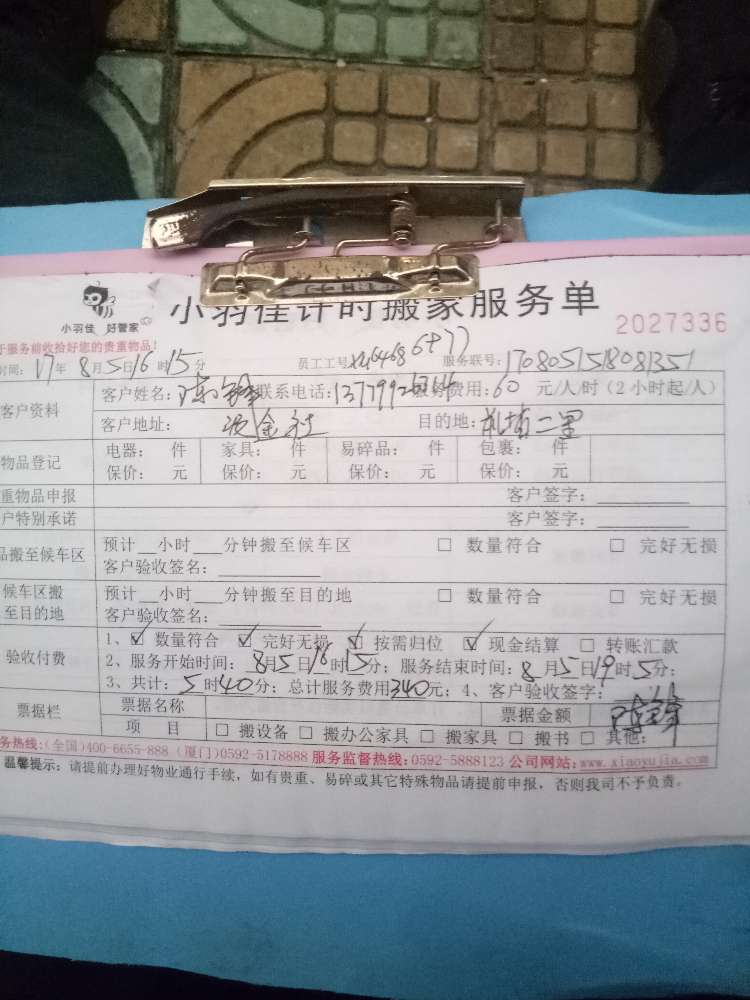 小羽佳 好管家
小羽佳计时搬家服务单
2027336
于服务前收拾好您的贵重物品!
时间: 17年 8月5日16时15分 员工工号 服务联号: 1708051518081351
客户资料 客户姓名: 陈 联系电话: 服务费用: 60 元/人/时 (2小时起/人)
客户地址: 金 目的地: 二里
物品登记 电器: 件 家具: 件 易碎品: 件 包裹: 件
保价: 元 保价: 元 保价: 元 保价: 元
重物品申报 客户签字:
户特别承诺 客户签字:
品搬至候车区 预计__小时___分钟搬至候车区 □ 数量符合 □ 完好无损
客户验收签名:
候车区搬至目的地 预计__小时___分钟搬至目的地 □ 数量符合 □ 完好无损
客户验收签名:
验收付费 1、☑ 数量符合 ☑ 完好无损 ☑ 按需归位 ☑ 现金结算 □ 转账汇款
2、服务开始时间: 8月5日16时15分; 服务结束时间: 8月5日19时5分;
3、共计: 5时40分; 总计服务费用340元; 4、客户验收签字:
票据栏 票据名称 票据金额
项 目 □ 搬设备 □ 搬办公家具 □ 搬家具 □ 搬书 □ 其他:
务热线:(全国)400-6655-888 (厦门)0592-5178888 服务监督热线:0592-5888123 公司网站:www.xiaoyujia.com
温馨提示: 请提前办理好物业通行手续, 如有贵重、易碎或其它特殊物品请提前申报, 否则我司不予负责。